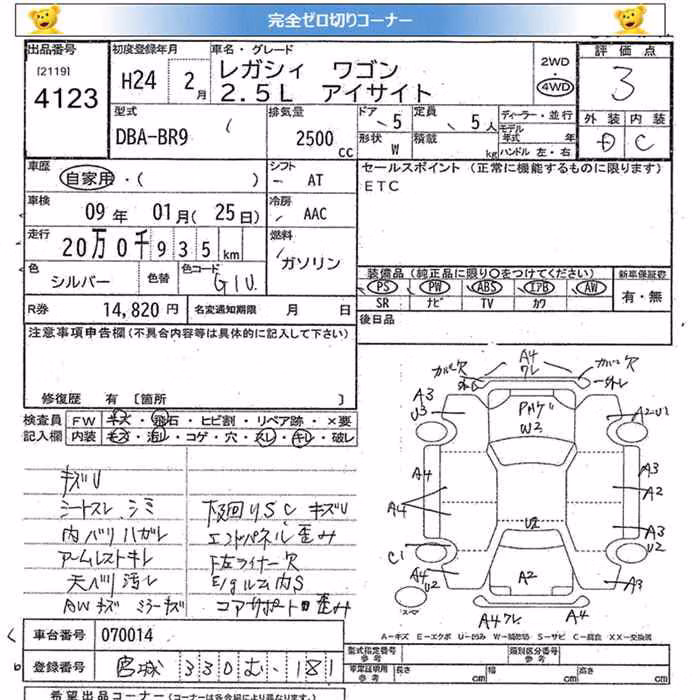 完全ゼロ切りコーナー
出品番号 初度登録年月 車名・グレード 評価点
[2119] 4123 H24 2月 レガシィ ワゴン 2WD 3
2.5L アイサイト 4WD
型式 排気量 ドア 5 定員 5人 ディーラー・並行 外装 内装
DBA-BR9 2500cc 形状 W 積載 kg モデル年式 年 D C
ハンドル 左・右
車歴 自家用・( ) シフト AT セールスポイント (正常に機能するものに限ります)
ETC
車検 09年 01月(25日) 冷房 AAC
走行 20万0千935km 燃料 ガソリン
色 シルバー 色替 色コード G1U 装備品(純正品に限り○をつけてください) 新車保証書
PS PW ABS エアB AW 有・無
SR ナビ TV カワ
R券 14,820円 名変通知期限 月 日 後日品
注意事項申告欄(不具合内容等は具体的に記入して下さい)
修復歴 有 [箇所 ]
検査員 FW キズ・飛石・ヒビ割・リペア跡・×要
記入欄 内装 キズ・汚レ・コゲ・穴・スレ・キレ・破レ
キズU
シートスレ、シミ
内バリハガレ
アームレストキレ
天バリ汚レ
AWキズ ミラーキズ
下回りSC キズU
エンドパネル歪み
F左ライナー欠
E/gルム内S
コアサポート凹歪み
カバー欠 A4 ワレ カバー欠
外レ 外レ
A3 U3 PMゲ W3 A2・U1
A4 A3
A4 A2
U2 A3
C1 U2
A4 U2 A2 A3
スペア
A4ワレ A4
A-キズ E-エクボ U-凹み W-補修跡 S-サビ C-腐食 XX-交換済
車台番号 070014
登録番号 宮城 330 む・181
型式指定番号 参考 類別区分番号 参考
車定証明用 参考 長さ cm 幅 cm 高さ cm
希望出品コーナー (コーナーは各会場により異なります)